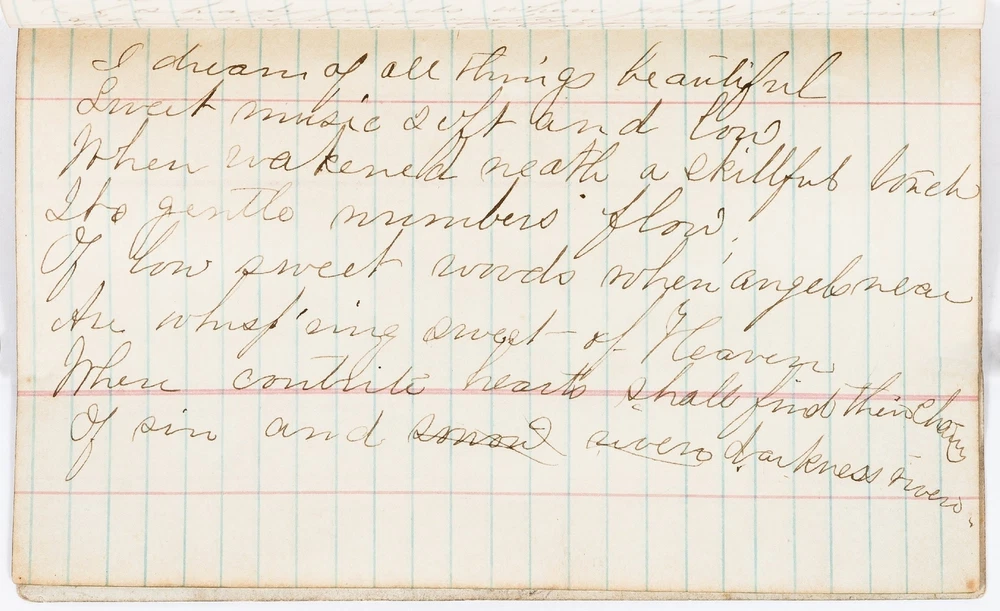 I dream of all things beautiful
Sweet music soft and low
When wakened neath a skillful touch
Its gentle numbers flow,
Of low sweet words when angels near
Are whisp'ring sweet of Heaven
Where contrite hearts shall find their chains
Of sin and riven darkness riven.